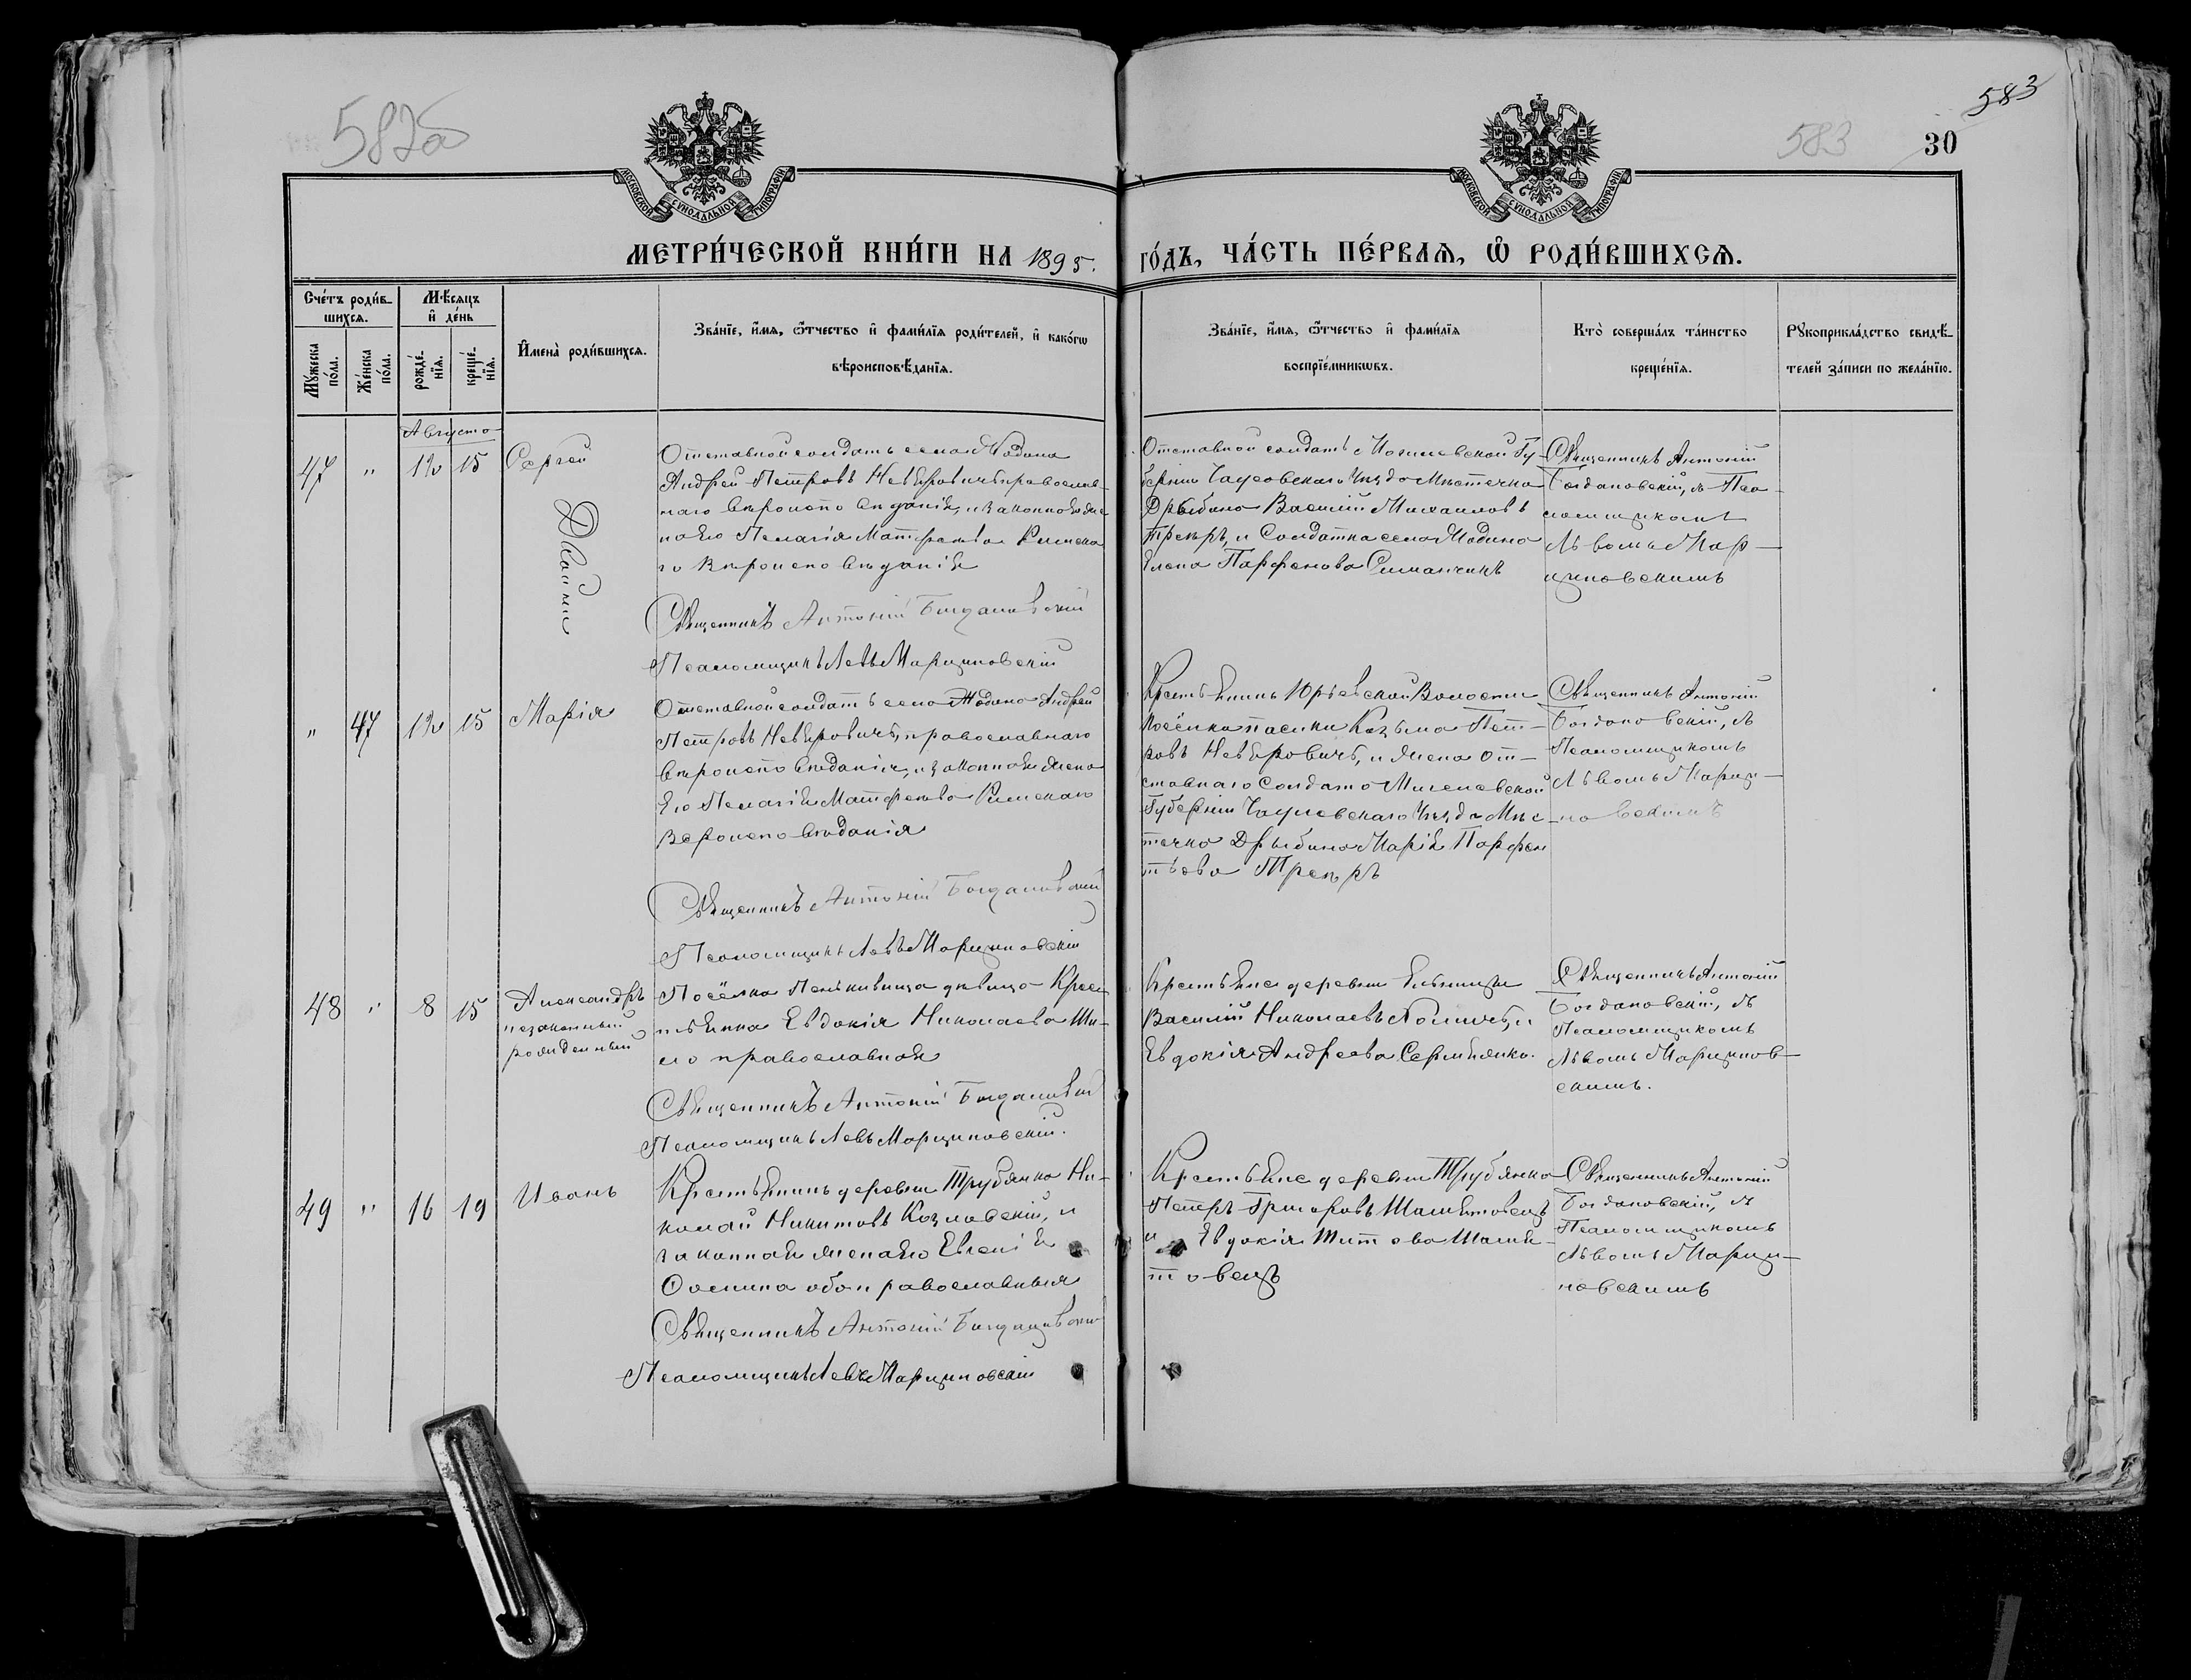 582об
583
583
30
МОСКОВСКОЙ СѴНОДАЛЬНОЙ ТИПОГРАФІИ
МОСКОВСКОЙ СѴНОДАЛЬНОЙ ТИПОГРАФІИ
МЕТРИ́ЧЕСКОЙ КНИ́ГИ НА 1895. ГО́ДЪ, ЧА́СТЬ ПЕ́РВАѦ, Ѡ РОДИ́ВШИХСѦ.
Сче́тъ роди́в-
шихсѧ.
Мѣ́сѧцъ
и҆ де́нь
Мꙋ́жеска по́ла.
Же́нска по́ла.
рожде́-
нїѧ.
креще́-
нїѧ.
И҆мена̀ роди́вшихсѧ.
Зва́нїе, и҆́мѧ, ѻ҆́тчество и҆ фами́лїѧ роди́телей, и҆ како́гѡ
вѣроисповѣ́данїѧ.
Зва́нїе, и҆́мѧ, ѻ҆́тчество и҆ фами́лїѧ
воспрїе́мникѡвъ.
Кто̀ соверша́лъ та́инство
креще́нїѧ.
Рꙋкоприкла́дство свидѣ́-
телей за́писи по жела́нїю.
Августа
47 " 12 15 Сергѣй
Двойни
Отставной солдатъ села Жодина
Андрей Петровъ Невѣровичъ православ-
наго вѣроисповѣданія, и законная же-
на его Пелагія Матфеева Римска-
го Вѣроисповѣданія
Священникъ Антоній Богдановскій
Псаломщикъ Левъ Марциновскій
Отставной солдатъ Могилевской Гу-
берніи Чаусовскаго Уѣзда Мѣстечка
Дрыбина Василій Михаиловъ
и Солдатка села Жодина
Елена Парфенова
Священникъ Антоній
Богдановскій, съ Пса-
ломщикомъ
Львомъ Мар-
циновскимъ
" 47 12 15 Марія
Отставной солдатъ села Жодина Андрей
Петровъ Невѣровичъ, православнаго
вѣроисповѣданія, и законная жена
его Пелагія Матфеева Римскаго
Вѣроисповѣданія
Священникъ Антоній Богдановскій
Псаломщикъ Левъ Марциновскій
Крестьянинъ Юрьевской Волости
Посёлка Пасики Козьма Пет-
ровъ Невѣровичъ, и жена от-
ставнаго Солдата Могилевской
Губерніи Чаусовскаго Уѣзда Мѣс-
течка Дрыбина Марія Парфен
тьева
Священникъ Антоній
Богдановскій, съ
Псаломщикомъ
Львомъ Марци-
новскимъ
48 " 8 15 Александръ
незаконный
рожденный
Посёлка дѣвица Крес-
тьянка Евдокія Николаева Ши-
ло православная
Священникъ Антоній Богдановскій
Псаломщикъ Левъ Марциновскій.
Крестьяне деревни
Василій Николаевъ и
Евдокія Андреева
Священникъ Антоній
Богдановскій, съ
Псаломщикомъ
Львомъ Марцинов-
скимъ.
49 " 16 19 Иванъ
Крестьянинъ деревни Трубянка Ни-
колай Никитовъ Козловскій, и
законная жена его Евгенія
Осипова оба православныя
Священникъ Антоній Богдановскій
Псаломщикъ Левъ Марциновскій
Крестьяне деревни Трубянка
Петръ Григоровъ Шамѣтовецъ
и Евдокія Титова Шамѣ-
товецъ
Священникъ Антоній
Богдановскій, съ
Псаломщикомъ
Львомъ Марци-
новскимъ